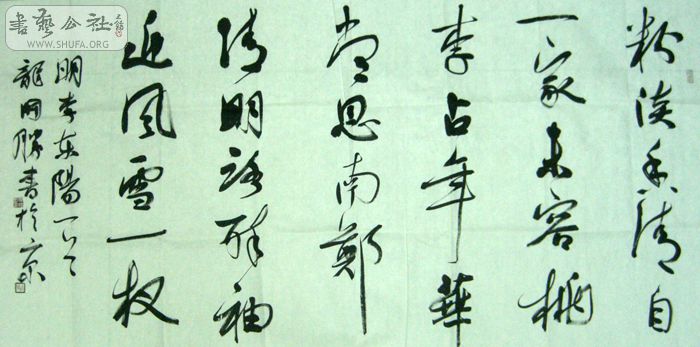 書藝公社
WWW.SHUFA.ORG
粉淡香清自
一家未容桃
李占年華
常思南鄭
清明路醉袖
迎風雪一杈
明李东陽一首
龍開勝書於京